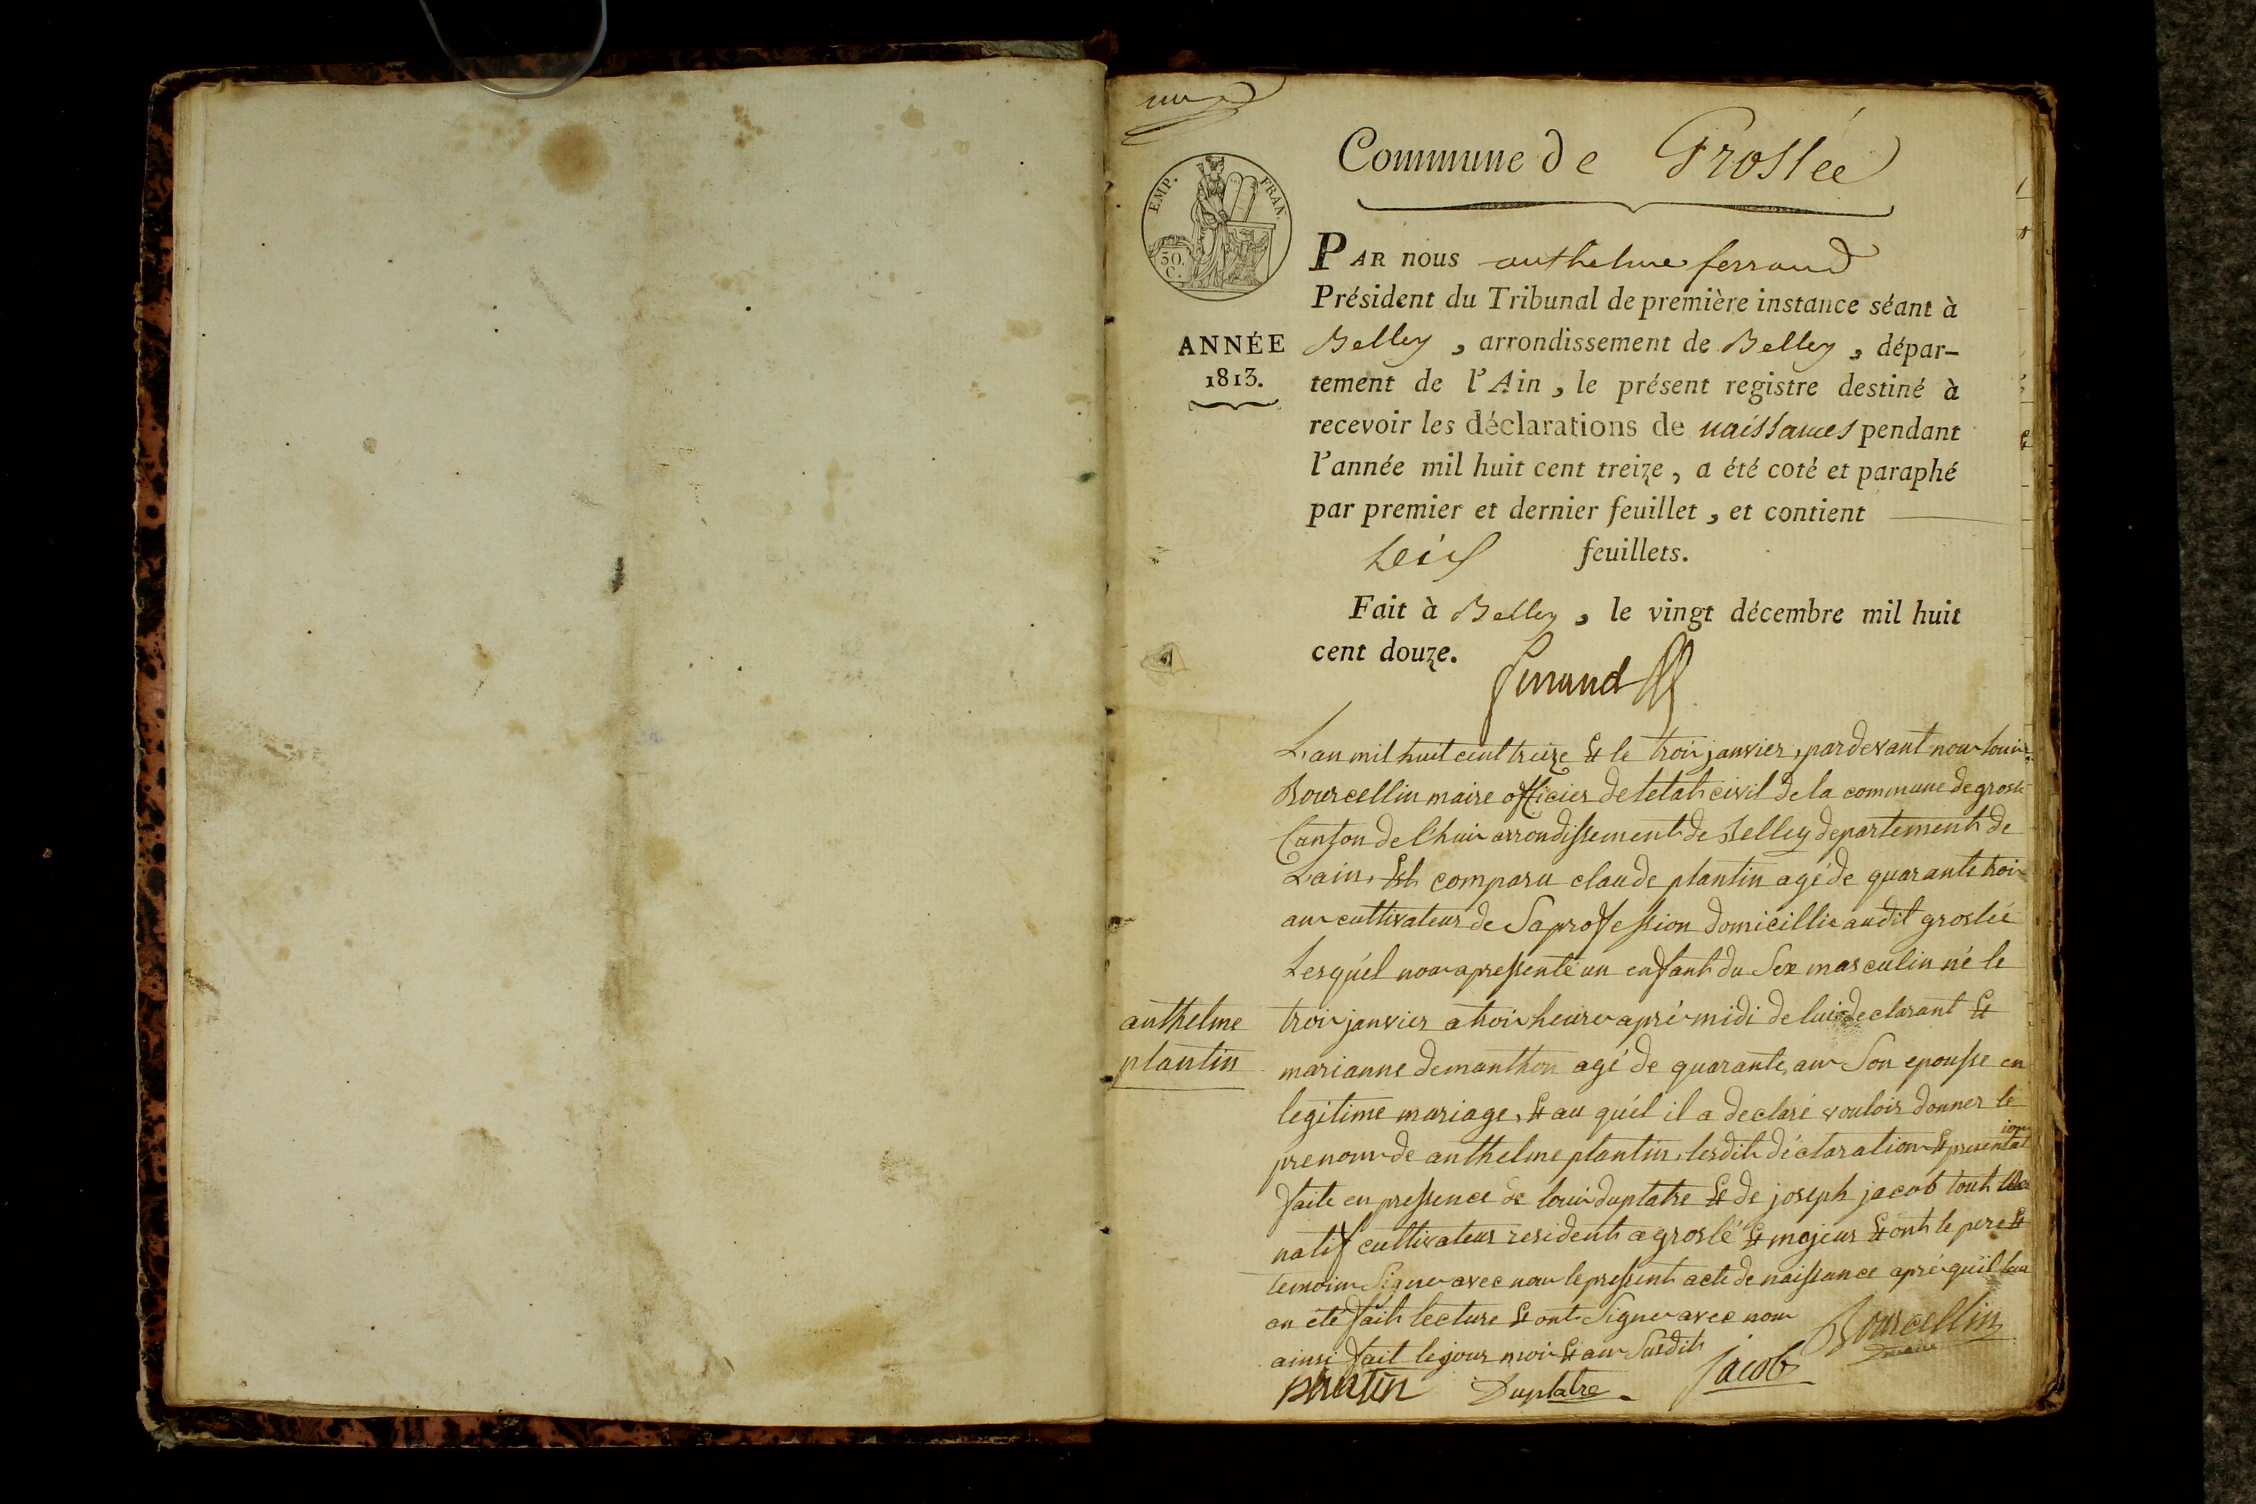 un
Commune de Groslée
EMP. FRAN.
30.
C.
ANNÉE
1813.
PAR nous anthelme ferrand
Président du Tribunal de première instance séant à
Belley, arrondissement de Belley, dépar-
tement de l'Ain, le présent registre destiné à
recevoir les déclarations de naissances pendant
l'année mil huit cent treize, a été coté et paraphé
par premier et dernier feuillet, et contient
seix feuillets.
Fait à Belley, le vingt décembre mil huit
cent douze.
ferrand
L'an mil huit cent treize & le trois janvier, pardevant nous louis
Bourcellin maire officier de letat civil de la commune de groslé
Canton de l'huis arrondissement de Belley departement de
Lain, Est comparu claude plantin agé de quarante trois
ans cultivateur de Sa profession domicillié audit groslée
Lesquél nous a pressenté un enfant du Sex masculin né le
anthelme
plantin
trois janvier a trois heures aprés midi de lui declarant &
marianne demanthon agé de quarante, ans Son epousse en
legitime mariage, & au quél il a declaré vouloir donner le
prenom de anthelme plantin, lesdit déclaration & presentation
faite en pressence de louis duplatre & de joseph jacob tout
natif cultivateur resident a groslé & majeur & ont le pere &
temoins Signer avec nous le pressent acte de naissance aprés quil
en eté fait lecture & ont Signer avec nous
ainsi fait le jour mois & an Susdit
Bourcellin
maire
plantin Duplatre Jacob